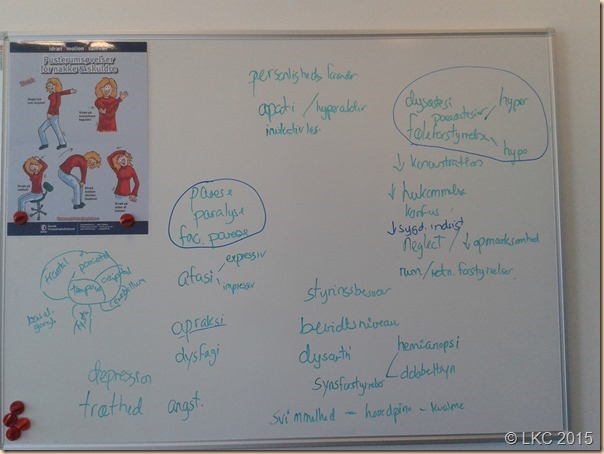 idræt motion samvær
Pusterumsøvelser
for nakke & skuldre
personligheds
apati / hyperaktiv
dysæstesi
paræstesier
hyper
føleforstyrrelse
hypo
↓ koncentration
↓ hukommelse
konfus
↓ sygd. indsigt
neglect / ↓ opmærksomhed
rum / retn. forstyrrelser
parese
paralyse
fac. parese
afasi
expressiv
impressiv
frontal
parietal
temporal
occipital
cerebellum
basal.
styringsbesvær
apraksi
bevidsthedsniveau
dysfagi
dysartri
hemianopsi
synsforstyrrelser
dobbeltsyn
depression
træthed
angst.
svimmelhed - hovedpine - kvalme
© LKC 2015